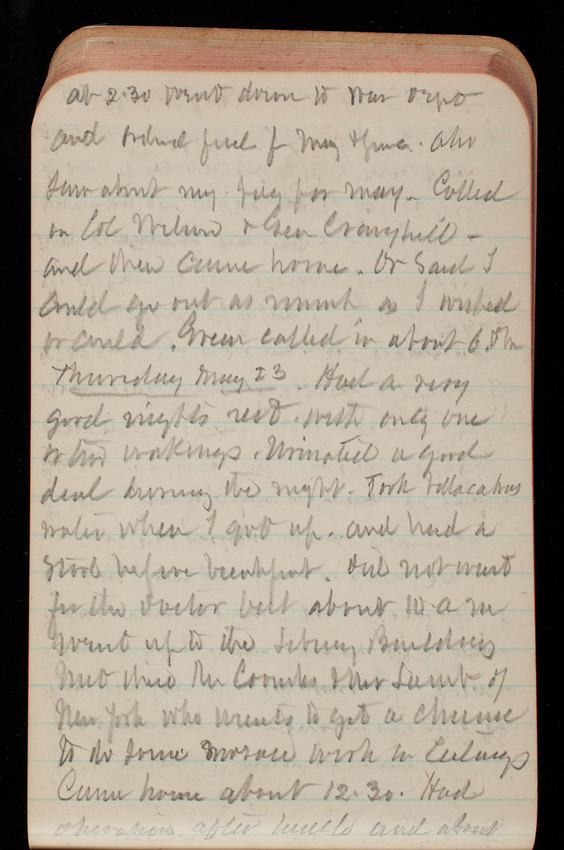 at 2.30 went down to War dept
and ordered fuel for May & June. also
saw about my pay for may. Called
on Col Wilson & Gen Craighill -
and then came home. Dr Said I
could go out as much as I wished
or could. Green called in about 6 Pm
Thursday May 23. Had a very
good nights rest with only one
or two wakings. Urinated a good
deal during the night. Took
water when I got up. and had a
stool before breakfast. Did not wait
for the doctor but about 10 a m
went up to the Library Building
Met there Mr Coombs & Mr Lamb of
New York who wants to get a chance
to do some Mosaic work in Ceilings
Came home about 12.30. Had
after lunch and about